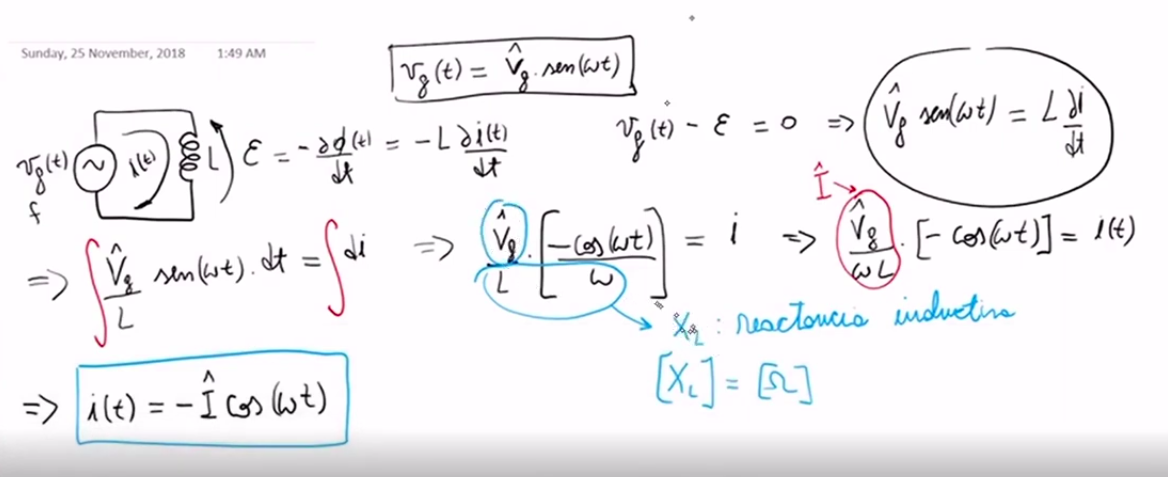 Sunday, 25 November, 2018 1:49 AM
v_g(t) = V̂_g . sen(ωt)
v_g(t) f i(t) L ε = -∂ϕ(t)/dt = -L ∂i(t)/dt
v_g(t) - ε = 0 => V̂_g sen(ωt) = L ∂i/dt
=> ∫ V̂_g/L sen(ωt) . dt = ∫ di => V̂_g/L . [-cos(ωt)/ω] = i => V̂_g/ωL . [-cos(ωt)] = i(t)
Î
X_L : reactancia inductiva
[X_L] = [Ω]
=> i(t) = -Î cos(ωt)